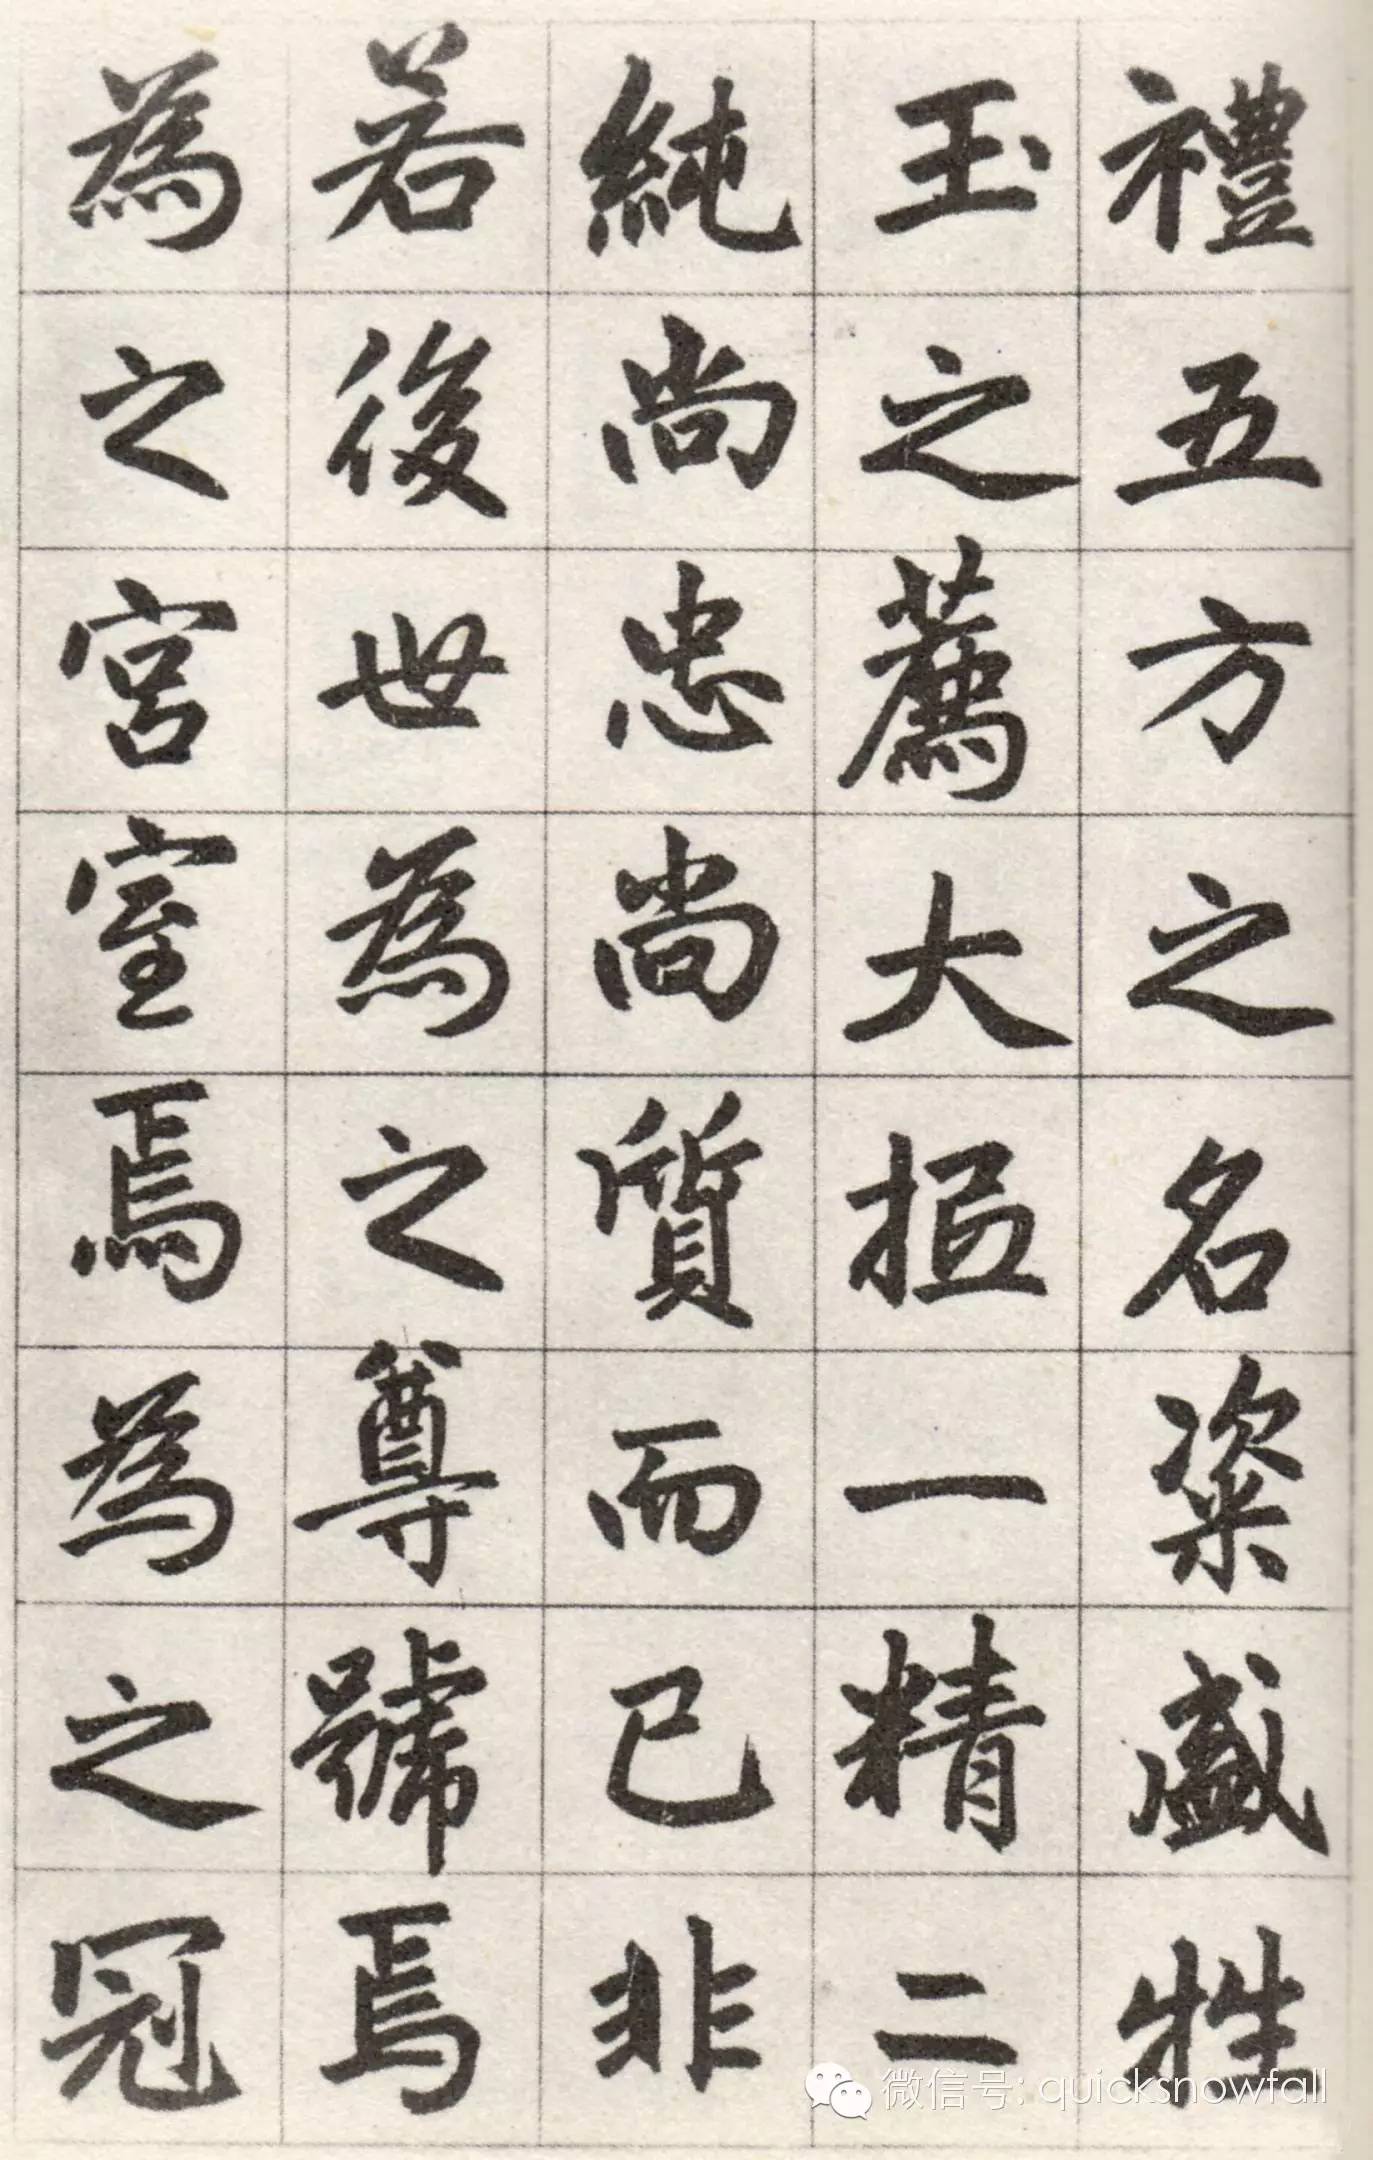 禮五方之名粢盛牲
玉之薦大抵一精二
純尚忠尚質而已非
若後世為之尊號焉
為之宮室焉為之冠
微信号: quicksnowfall